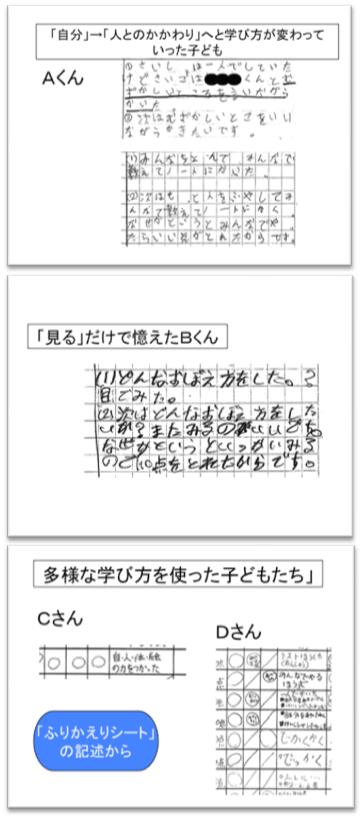 「自分」→「人とのかかわり」へと学び方が変わって
いった子ども
Aくん
①さいしょは一人でしていた
けどさいごは●●●くんとむ
ずかしいところを
かいた
②次はむずかしいとこをいい
ながらかきたいです。
(1)みんなを んで みんなで
教えてノートにかいた。
(2)次はも と人をふやしてみ
んなで教えてノートにかく。
なぜかというとみんなでや
たらいい点がとれたからです。
「見る」だけで憶えたBくん
(1)どんなおぼえ方をした。?
目でみた。
(2)次はどんなおぼえ方をした
いか?またみるのがいいです。
なぜかというといっかいみる
ので10点をとれたからです。
多様な学び方を使った子どもたち」
Cさん
Dさん
自・人・体・絵
の力をつかった
テスト
みんなでやる
ほう
じかくかく
「ふりかえりシート」
の記述から